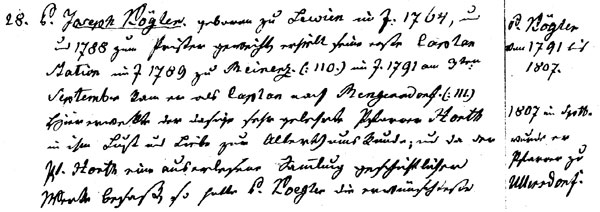 28. P. Joseph Kögler. geboren zu Lewin im J. 1764, u
u 1788 zum Priester geweiht erhielt seine erste Caplan
Station im J 1789 zu Reinerz (: 110.) im J. 1791 am 3ten
September kam er als Caplan nach Rengersdorf. (: 111.)
Hier weckte der dasige sehr gelehrte Pfarrer Hoeth
in ihm Lust und Liebe zur Alterthumskunde, und da der
Pf. Hoeth eine auserlesene Samlung geschichtlicher
Werke besaß, so hatte P. Koegler die erwünschteste
P. Kögler
von 1791 bis
1807.
1807 im Septb.
wurde er
Pfarrer zu
Ullersdorf.